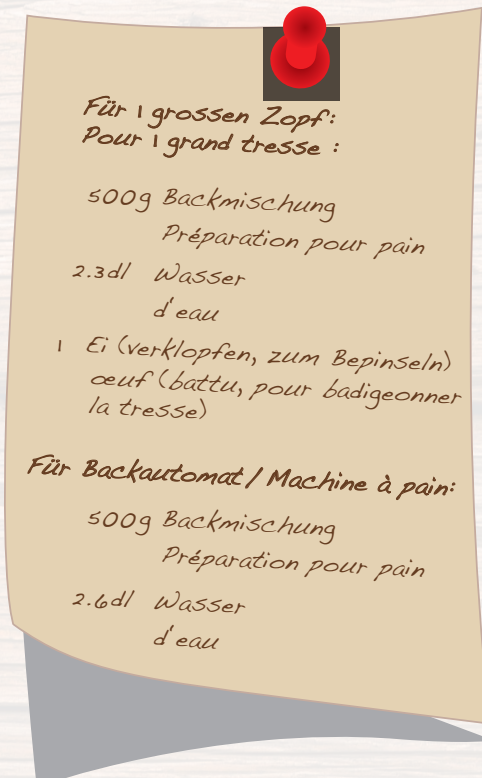 Für 1 grossen Zopf:
Pour 1 grand tresse :
500g Backmischung
Préparation pour pain
2.3dl Wasser
d'eau
1 Ei (verklopfen, zum Bepinseln)
œuf (battu, pour badigeonner
la tresse)
Für Backautomat / Machine à pain:
500g Backmischung
Préparation pour pain
2.6dl Wasser
d'eau